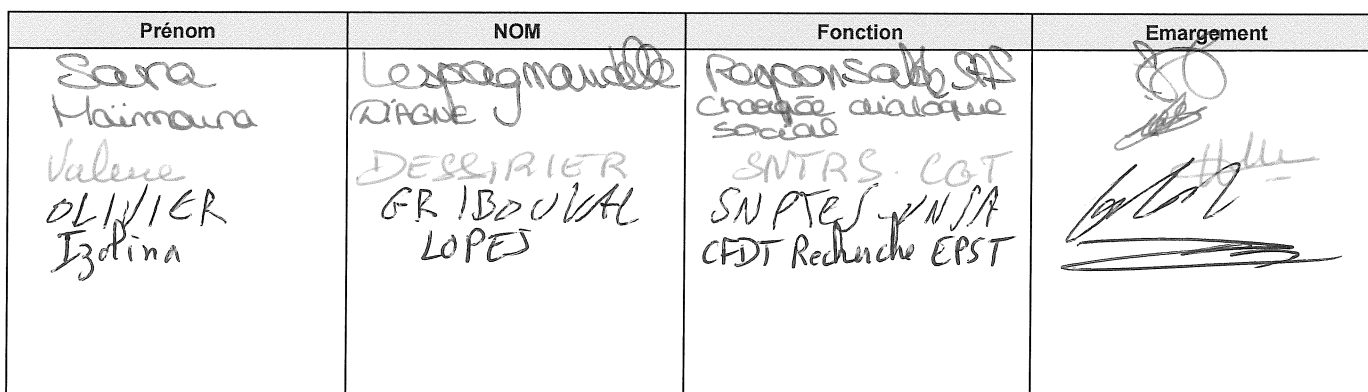 Prénom NOM Fonction Emargement
Sara Lespagnandelle Responsable SAS
Maïmouna DIAGNE Chargée dialogue
social
Valerie DESSIRIER SNTRS. CGT
OLIVIER GRIBOUVAL SNPTES-UNSA
Izolina LOPES CFDT Recherche EPST